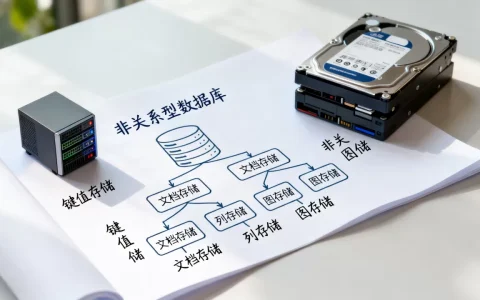 非关系型数据库
文档存储
文档存储
非关
图储
键值存储
文档存储
列存储
图存储
图存储
键值
储
文档存储
列存储
图存储